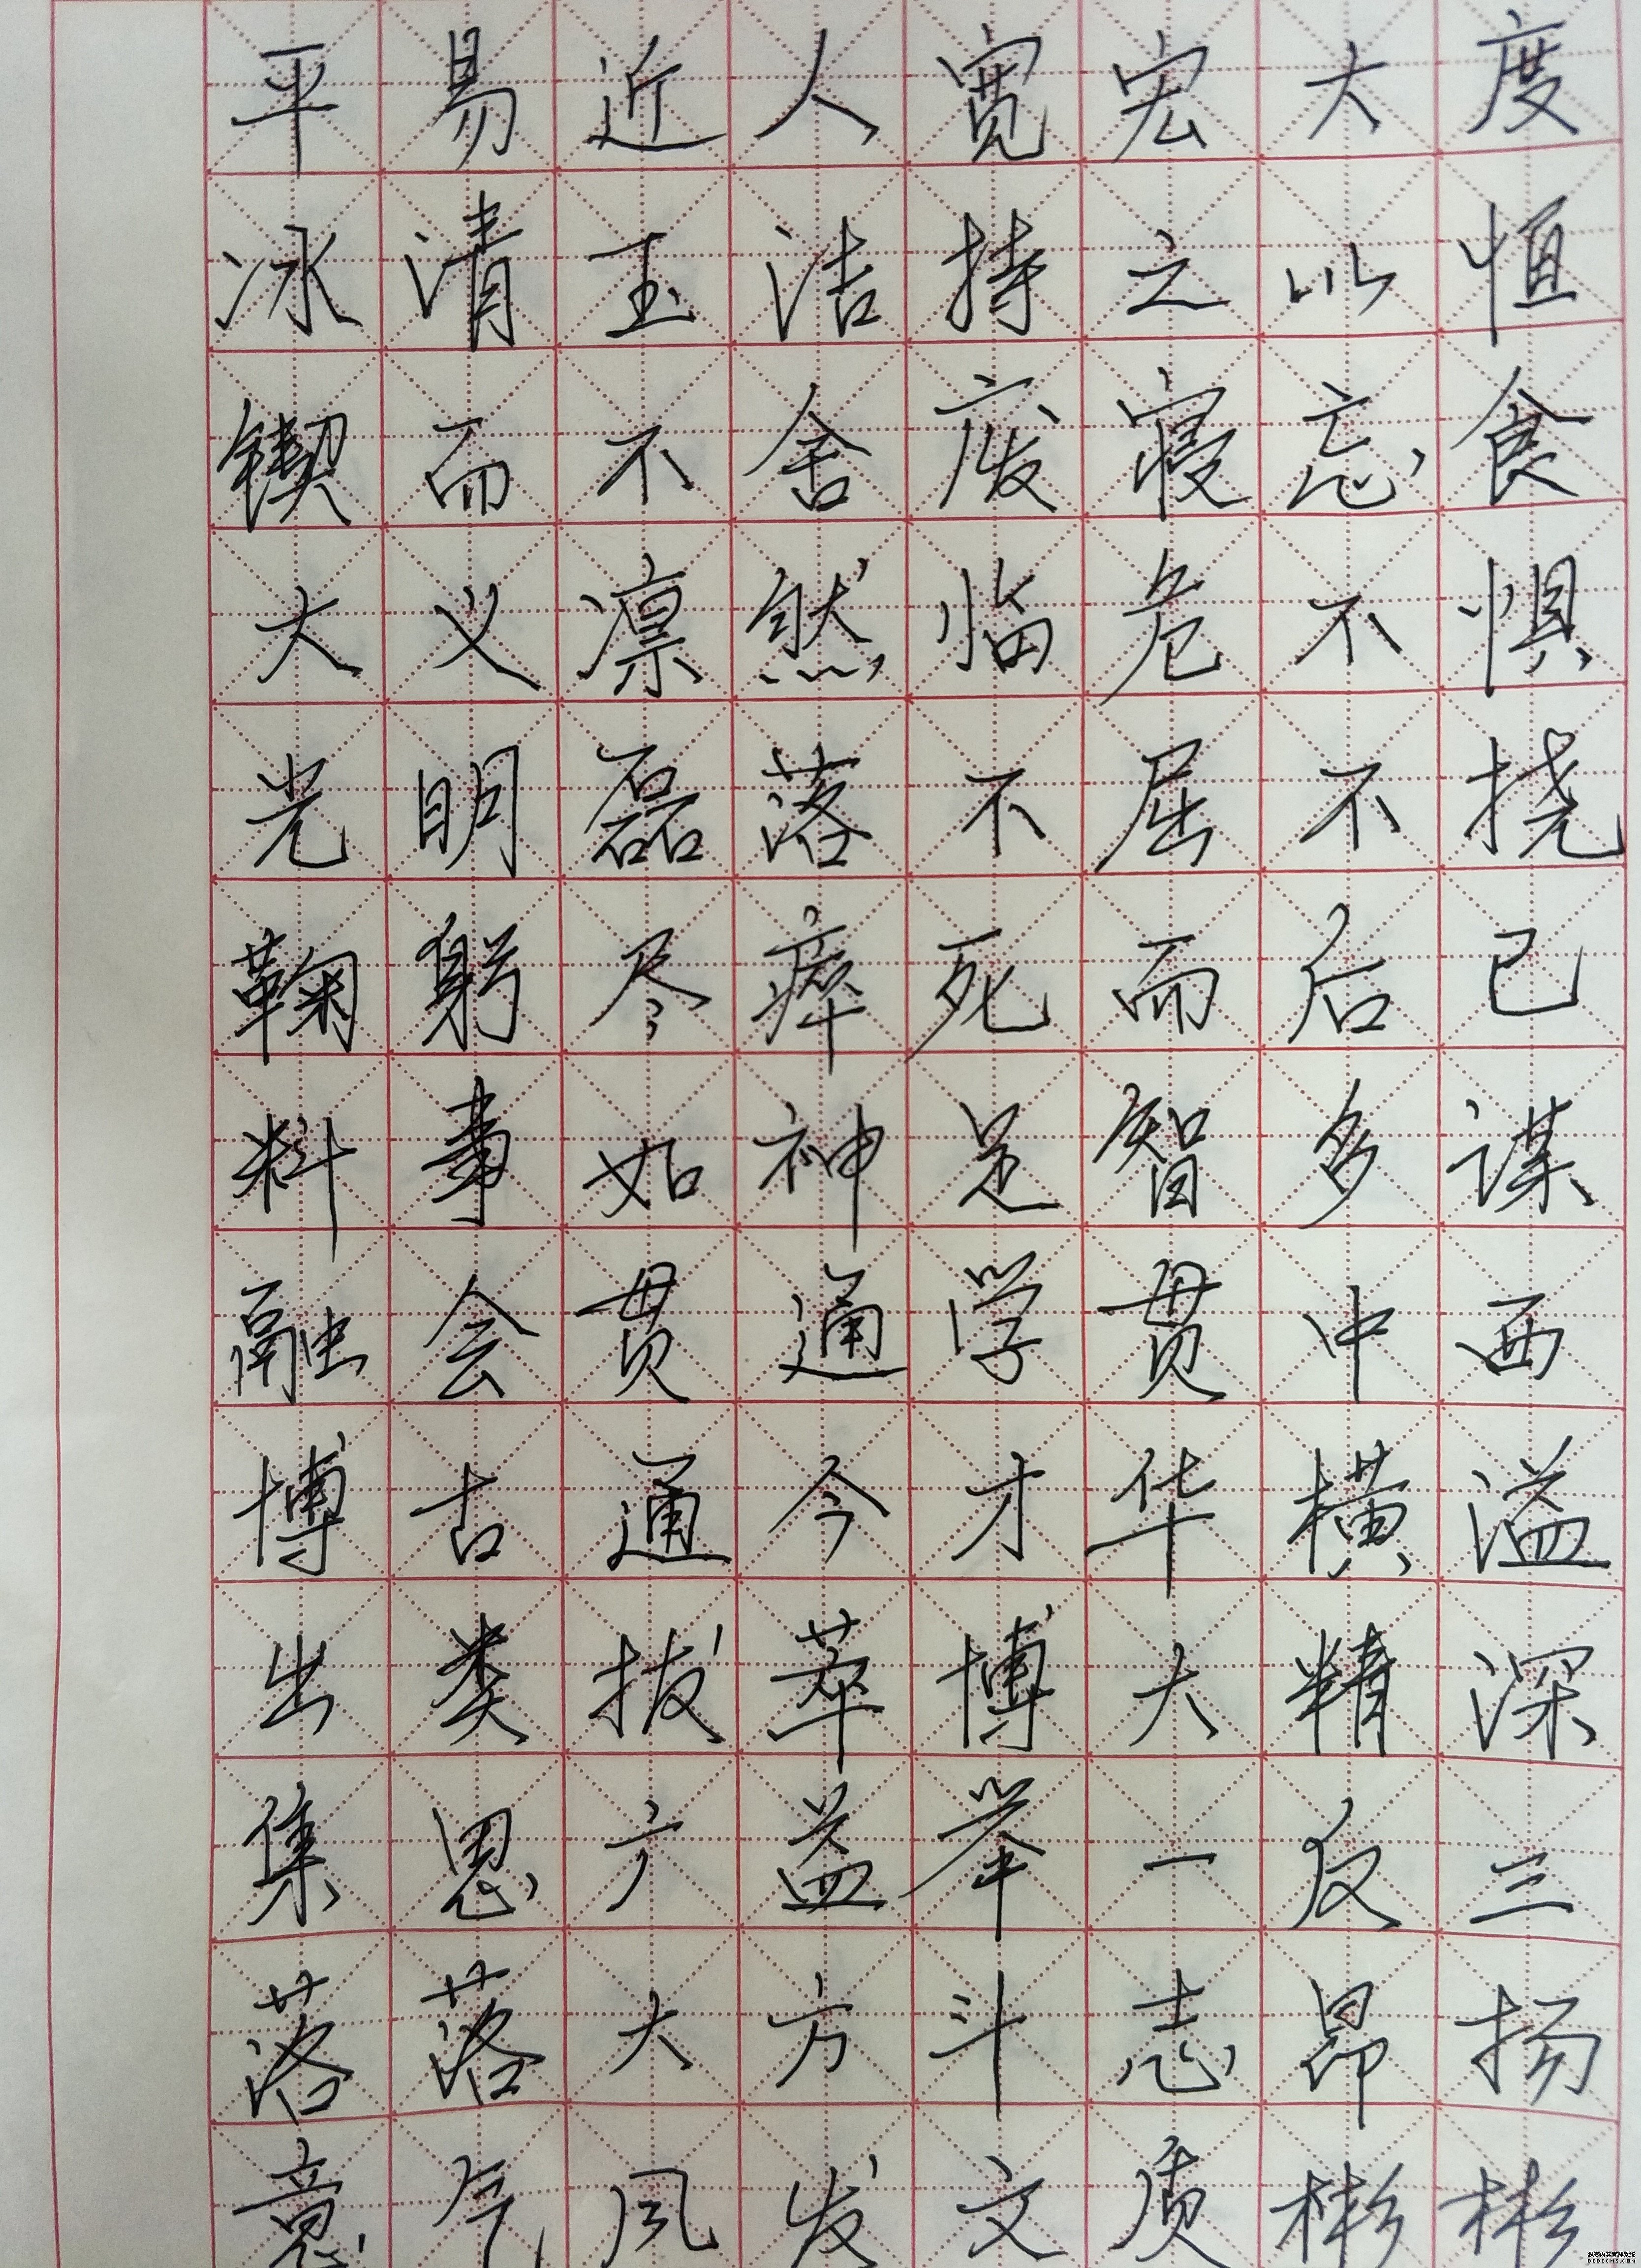 平易近人宽宏大度
冰清玉洁持之以恒
锲而不舍废寝忘食
大义凛然临危不惧
光明磊落不屈不挠
鞠躬尽瘁死而后已
料事如神足智多谋
融会贯通学贯中西
博古通今才华横溢
出类拔萃博大精深
集思广益举一反三
落落大方斗志昂扬
意气风发文质彬彬
织梦内容管理系统
DEDECMS.COM